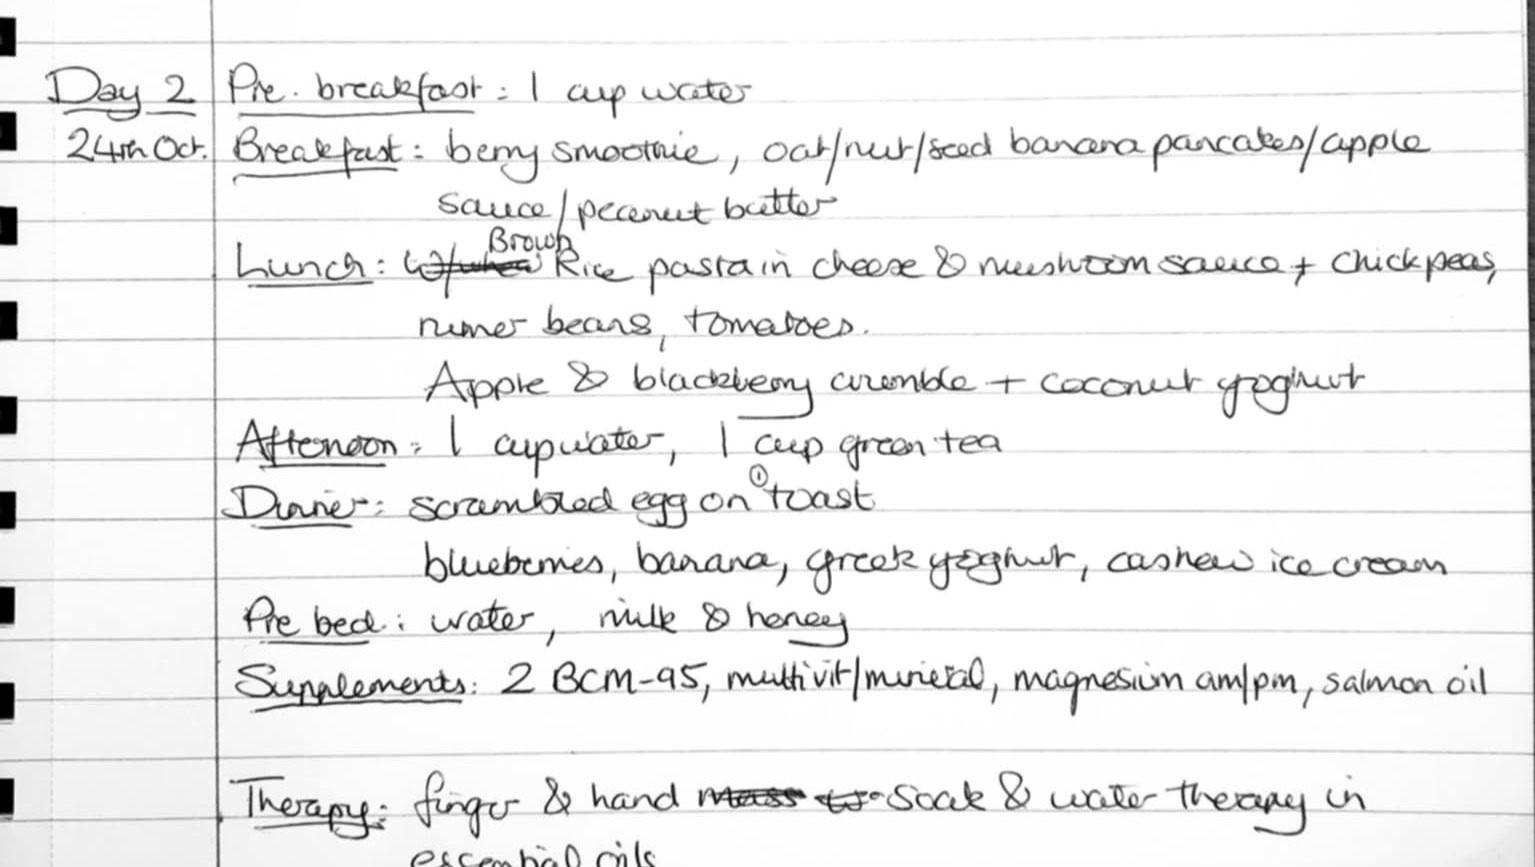 Day 2 Pre. breakfast: 1 cup water
24th Oct. Breakfast: berry smoothie, oat/nut/seed banana pancakes/apple
sauce/peanut butter
Brown
Lunch: Rice pasta in cheese & mushroom sauce + chickpeas,
runner beans, tomatoes.
Apple & blackberry crumble + coconut yoghurt
Afternoon: 1 cup water, 1 cup green tea
Dinner: scrambled egg on ① toast
blueberries, banana, greek yoghurt, cashew ice cream
Pre bed: water, milk & honey
Supplements: 2 BCM-95, multivit/mineral, magnesium am/pm, salmon oil
Therapy: finger & hand soak & water therapy in
essential oils